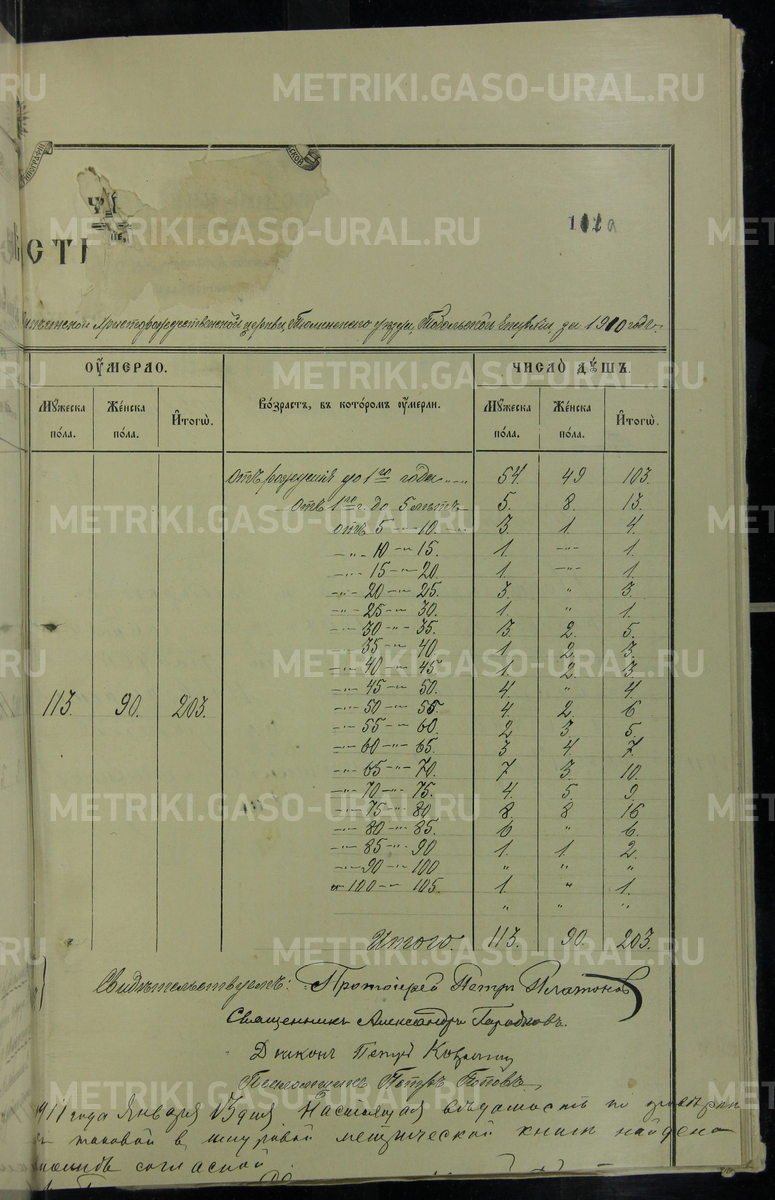 METRIKI.GASO-URAL.RU
СТІ
102а
Христорождественской церкви, Тюменского уѣзда, Тобольской Епархіи, за 1910 годъ.
ОУМЕРЛО. ЧИСЛО ДУШЪ.
Мужеска пола. Женска пола. Итогѡ. Возрастъ, въ которомъ оумерли. Мужеска пола. Женска пола. Итогѡ.
Отъ рожденія до 1го года 54. 49 103.
отъ 1го г. до 5 лѣтъ 5. 8. 13.
отъ 5 -"- 10. 3 1. 4.
-"- 10 -"- 15. 1. -"- 1.
-"- 15 -"- 20. 1. -"- 1.
-"- 20 -"- 25. 3. " 3.
-"- 25 -"- 30. 1. " 1.
-"- 30 -"- 35. 3. 2. 5.
35 -"- 40. 1. 2. 3.
-"- 40 -"- 45 1. 2. 3
-"- 45 -"- 50. 4. " 4
113. 90. 203. -"- 50 -"- 55. 4. 2. 6
-"- 55 -"- 60. 2 3 5.
-"- 60 -"- 65. 3 4. 7.
-"- 65 -"- 70. 7 3. 10.
-"- 70 -"- 75. 4. 5. 9.
-"- 75 -"- 80 8. 8 16
-"- 80 -"- 85. 6 " 6.
-"- 85 -"- 90 1. 1. 2.
-"- 90 -"- 100 " " "
-"- 100 -"- 105. 1. " 1.
" " "
Итого. 113. 90. 203.
Свидѣтельствуемъ: Протоіерей Петръ Платоновъ
Священникъ Александръ Городковъ.
Діаконъ Петръ
Псаломщикъ Петръ Поповъ
1911 года Января 13 дня Настоящая вѣдомость по
таковой въ шнуровой метрической книгѣ найдена
согласной